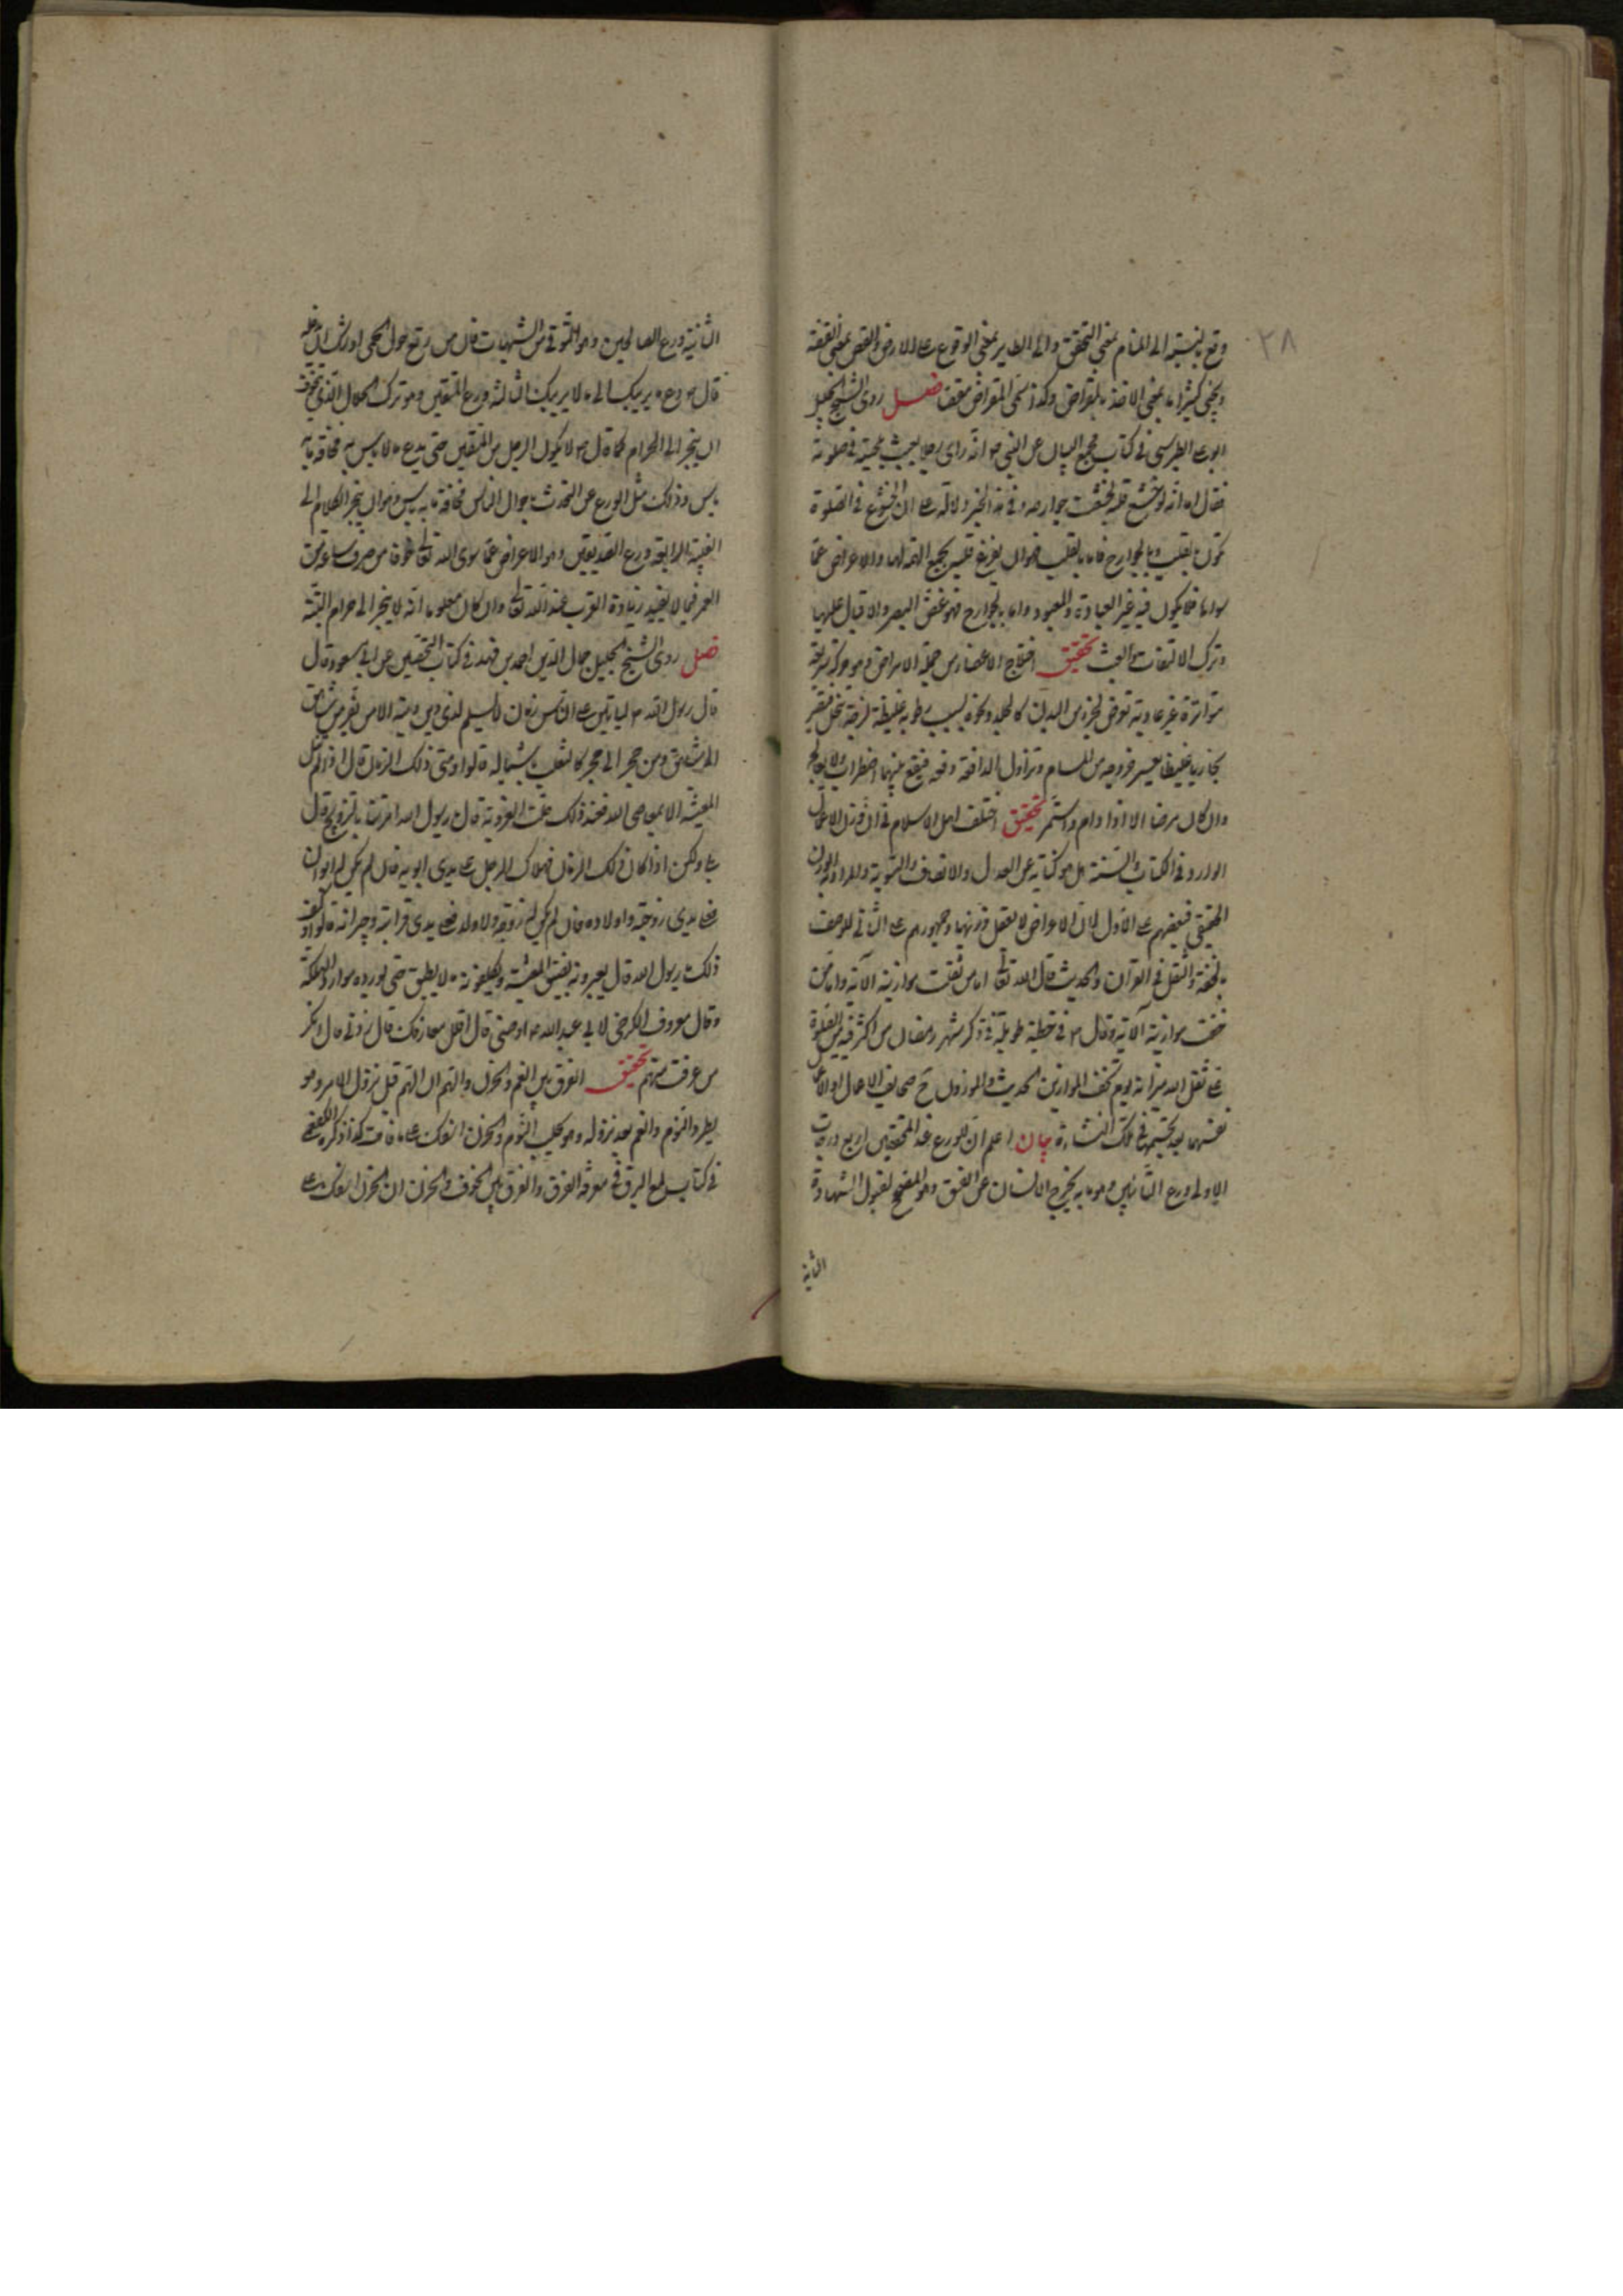 ٢٨
وقع بالنسبة الى المنام بمعنى التحقق والى الطير بمعنى الوقوع على الارض والقص بمعنى القصة
ويجئ كثيرا ما بمعنى الاخذ بالمقراض وكذا سمى المقراض مقصا فصل روى الشيخ الجليل
ابو على الطبرسى فى كتاب مجمع البيان عن النبى ص انه راى رجلا يعبث بلحيته فى صلوته
فقال اما انه لو خشع قلبه لخشعت جوارحه وفى هذا الخبر دلالة على ان الخشوع فى الصلوة
يكون بالقلب وبالجوارح فاما بالقلب فهو ان يفرغ قلبه بجمع الهمة لها والاعراض عما
سواها فلا يكون فيه غير العبادة والمعبود واما بالجوارح فهو غض البصر والاقبال عليها
وترك الالتفات والعبث تحقيق اختلاج الاعضاء من جملة الامراض وهو حركة سريعة
متواترة غير عادية تعرض لجزء من البدن كالجلد ونحوه بسبب رطوبة غليظة لزجة تنحل فتصير
بخاريا غليظا يعسر خروجه من المسام وتزاول الدافعة دفعه فيقع بينهما اضطراب ولا يعالج
وان كان مرضا الا اذا دام واستمر تحقيق اختلف اهل الاسلام فى ان وزن الاعمال
الوارد فى الكتاب والسنة هل هو كناية عن العدل والانصاف والتسوية والمراد به الوزن
الحقيقى فبعضهم على الاول لان الاعراض لا يعقل وزنها وجمهورهم على الثانى للوصف
بالخفة والثقل فى القران والحديث قال الله تعالى اما من ثقلت موازينه الآية واما من
خفت موازينه الآية وقال ص فى خطبة طويلة فى ذكر شهر رمضان من اكثر فيه من الصلوة
على ثقل الله ميزانه يوم تخف الموازين الحديث والموزون ح صحايف الاعمال او الاعمال
نفسها بعد تجسيمها فى تلك النشاءة بيان اعلم ان للورع عند المحققين اربع درجات
الاولى ورع التائبين وهو ما به يخرج الانسان عن الفسق وهو المصحح لقبول الشهادة
الثانية
الثانية ورع الصالحين وهو التوقى من الشبهات فان من رتع حول الحمى اوشك ان يدخله
قال ص دع ما يريبك الى ما لا يريبك الثالثة ورع المتقين وهو ترك الحلال الذى يتخوف
ان ينجر الى الحرام كما قال ص لا يكون الرجل من المتقين حتى يدع ما لا باس به مخافة ما به
باس وذلك مثل الورع عن التحدث باحوال الناس مخافة ما به باس وهو ان ينجر الكلام الى
الغيبة الرابعة ورع الصديقين وهو الاعراض عما سوى الله تعالى خوفا من صرف ساعة من
العمر فيما لا يفيد زيادة القرب عند الله تعالى وان كان معلوما انه لا ينجر الى حرام البتة
فصل روى الشيخ الجليل جمال الدين احمد بن فهد فى كتاب التحصين عن ابن مسعود قال
قال رسول الله ص لياتين على الناس زمان لا يسلم لذى دين دينه الا من يفر من شاهق
الى شاهق ومن حجر الى حجر كالثعلب باشباله قالوا ومتى ذلك الزمان قال اذا لم تنل
المعيشة الا بمعاصى الله فعند ذلك حلت العزوبة قالوا يا رسول الله امرتنا بالتزويج قال
بلى ولكن اذا كان ذلك الزمان فهلاك الرجل على يدى ابويه فان لم يكن له ابوان
فعلى يدى زوجته واولاده فان لم يكن له زوجة ولا ولد فعلى يدى قرابته وجيرانه قالوا وكيف
ذلك يا رسول الله قال يعيرونه بضيق المعيشة ويكلفونه ما لا يطيق حتى يوردوه موارد الهلكة
وقال معروف الكرخى لابى عبد الله ع اوصنى قال اقلل معارفك قال زدنى قال انكر
من عرفت منهم تحقيق الفرق بين الغم والحزن والهم ان الهم قبل نزول الامر وهو
يطرد النوم والغم بعد نزوله وهو يجلب النوم والحزن اسفك على ما فات كذا ذكره الكفعمى
فى كتاب لمع البرق فى معرفة الفرق والفرق بين الخوف والحزن ان الحزن اسفك على